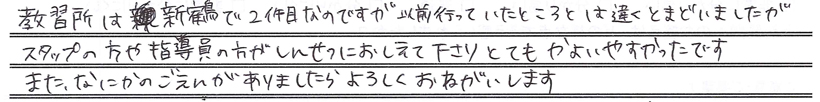 教習所は新宿で2件目なのですが以前行っていたところとは違くとまどいましたが
スタップの方や指導員の方がしんせつにおしえて下さりとてもかよいやすかったです
また、なにかのごえんがありましたらよろしくおねがいします